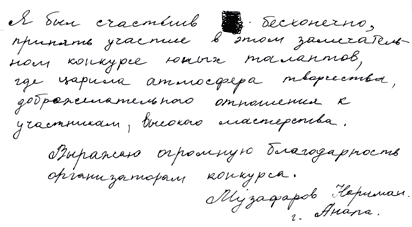 Я был счастлив бесконечно,
принять участие в этом замечатель-
ном конкурсе юных талантов,
где царила атмосфера творчества,
доброжелательного отношения к
участникам, высокого мастерства.
Выражаю огромную благодарность
организаторам конкурса.
Музафаров Нариман.
г. Анапа.